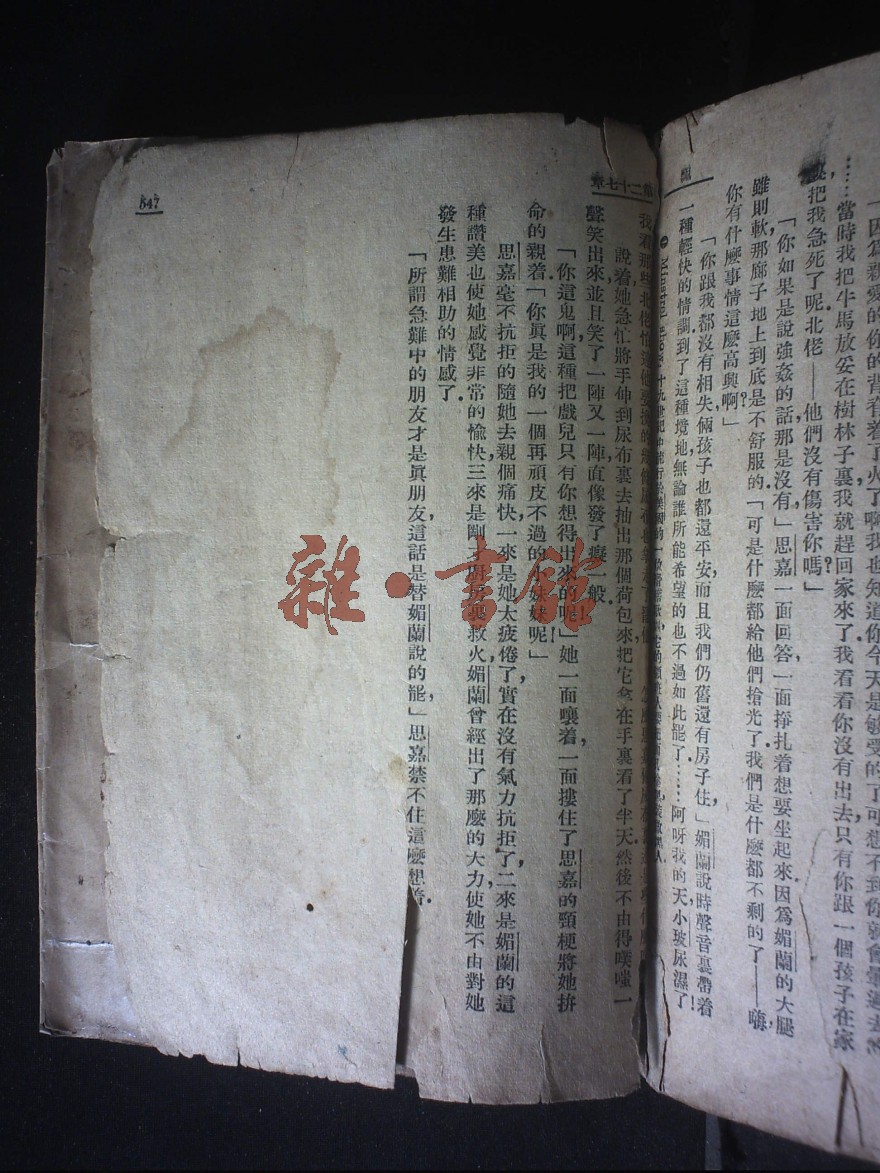 飄
……當時我把牛馬放妥在樹林子裏我就趕回家來了我看看你沒有出去只有你跟一個孩子在家
把我急死了呢北佬——他們沒有傷害你嗎?」
「你如果是說強姦的話那是沒有,」思嘉一面回答,一面掙扎着想要坐起來因爲媚蘭的大腿
雖則軟那廊子地上到底是不舒服的。「可是什麽都給他們搶光了我們是什麽都不剩的了——嗨,
你有什麽事情這麽高興啊?」
「你跟我都沒有相失倆孩子也都還平安而且我們仍舊還有房子住,」媚蘭說時聲音裏帶着
一種輕快的情調到了這種境地無論誰所能希望的也不過如此罷了……阿呀我的天小玻尿濕了!
第二十七章
說着她急忙將手伸到尿布裏去抽出那個荷包來把它拿在手裏看了半天然後不由得噗嗤一
聲笑出來,並且笑了一陣又一陣,直像發了癡一般。
「你這鬼啊這種把戲兒只有你想得出來的呢!」她一面嚷着,一面摟住了思嘉的頸梗將她拚
命的親着「你眞是我的一個再頑皮不過的小妹妹呢!」
思嘉毫不抗拒的隨她去親個痛快,一來是她太疲倦了,實在沒有氣力抗拒了,二來是媚蘭的這
種讚美也使她感覺非常的愉快,三來是剛才廚房裏救火,媚蘭曾經出了那麽的大力,使她不由對她
發生患難相助的情感了。
「所謂急難中的朋友,才是眞朋友,這話是替媚蘭說的罷,」思嘉禁不住這麽想着。
547
雜·書館